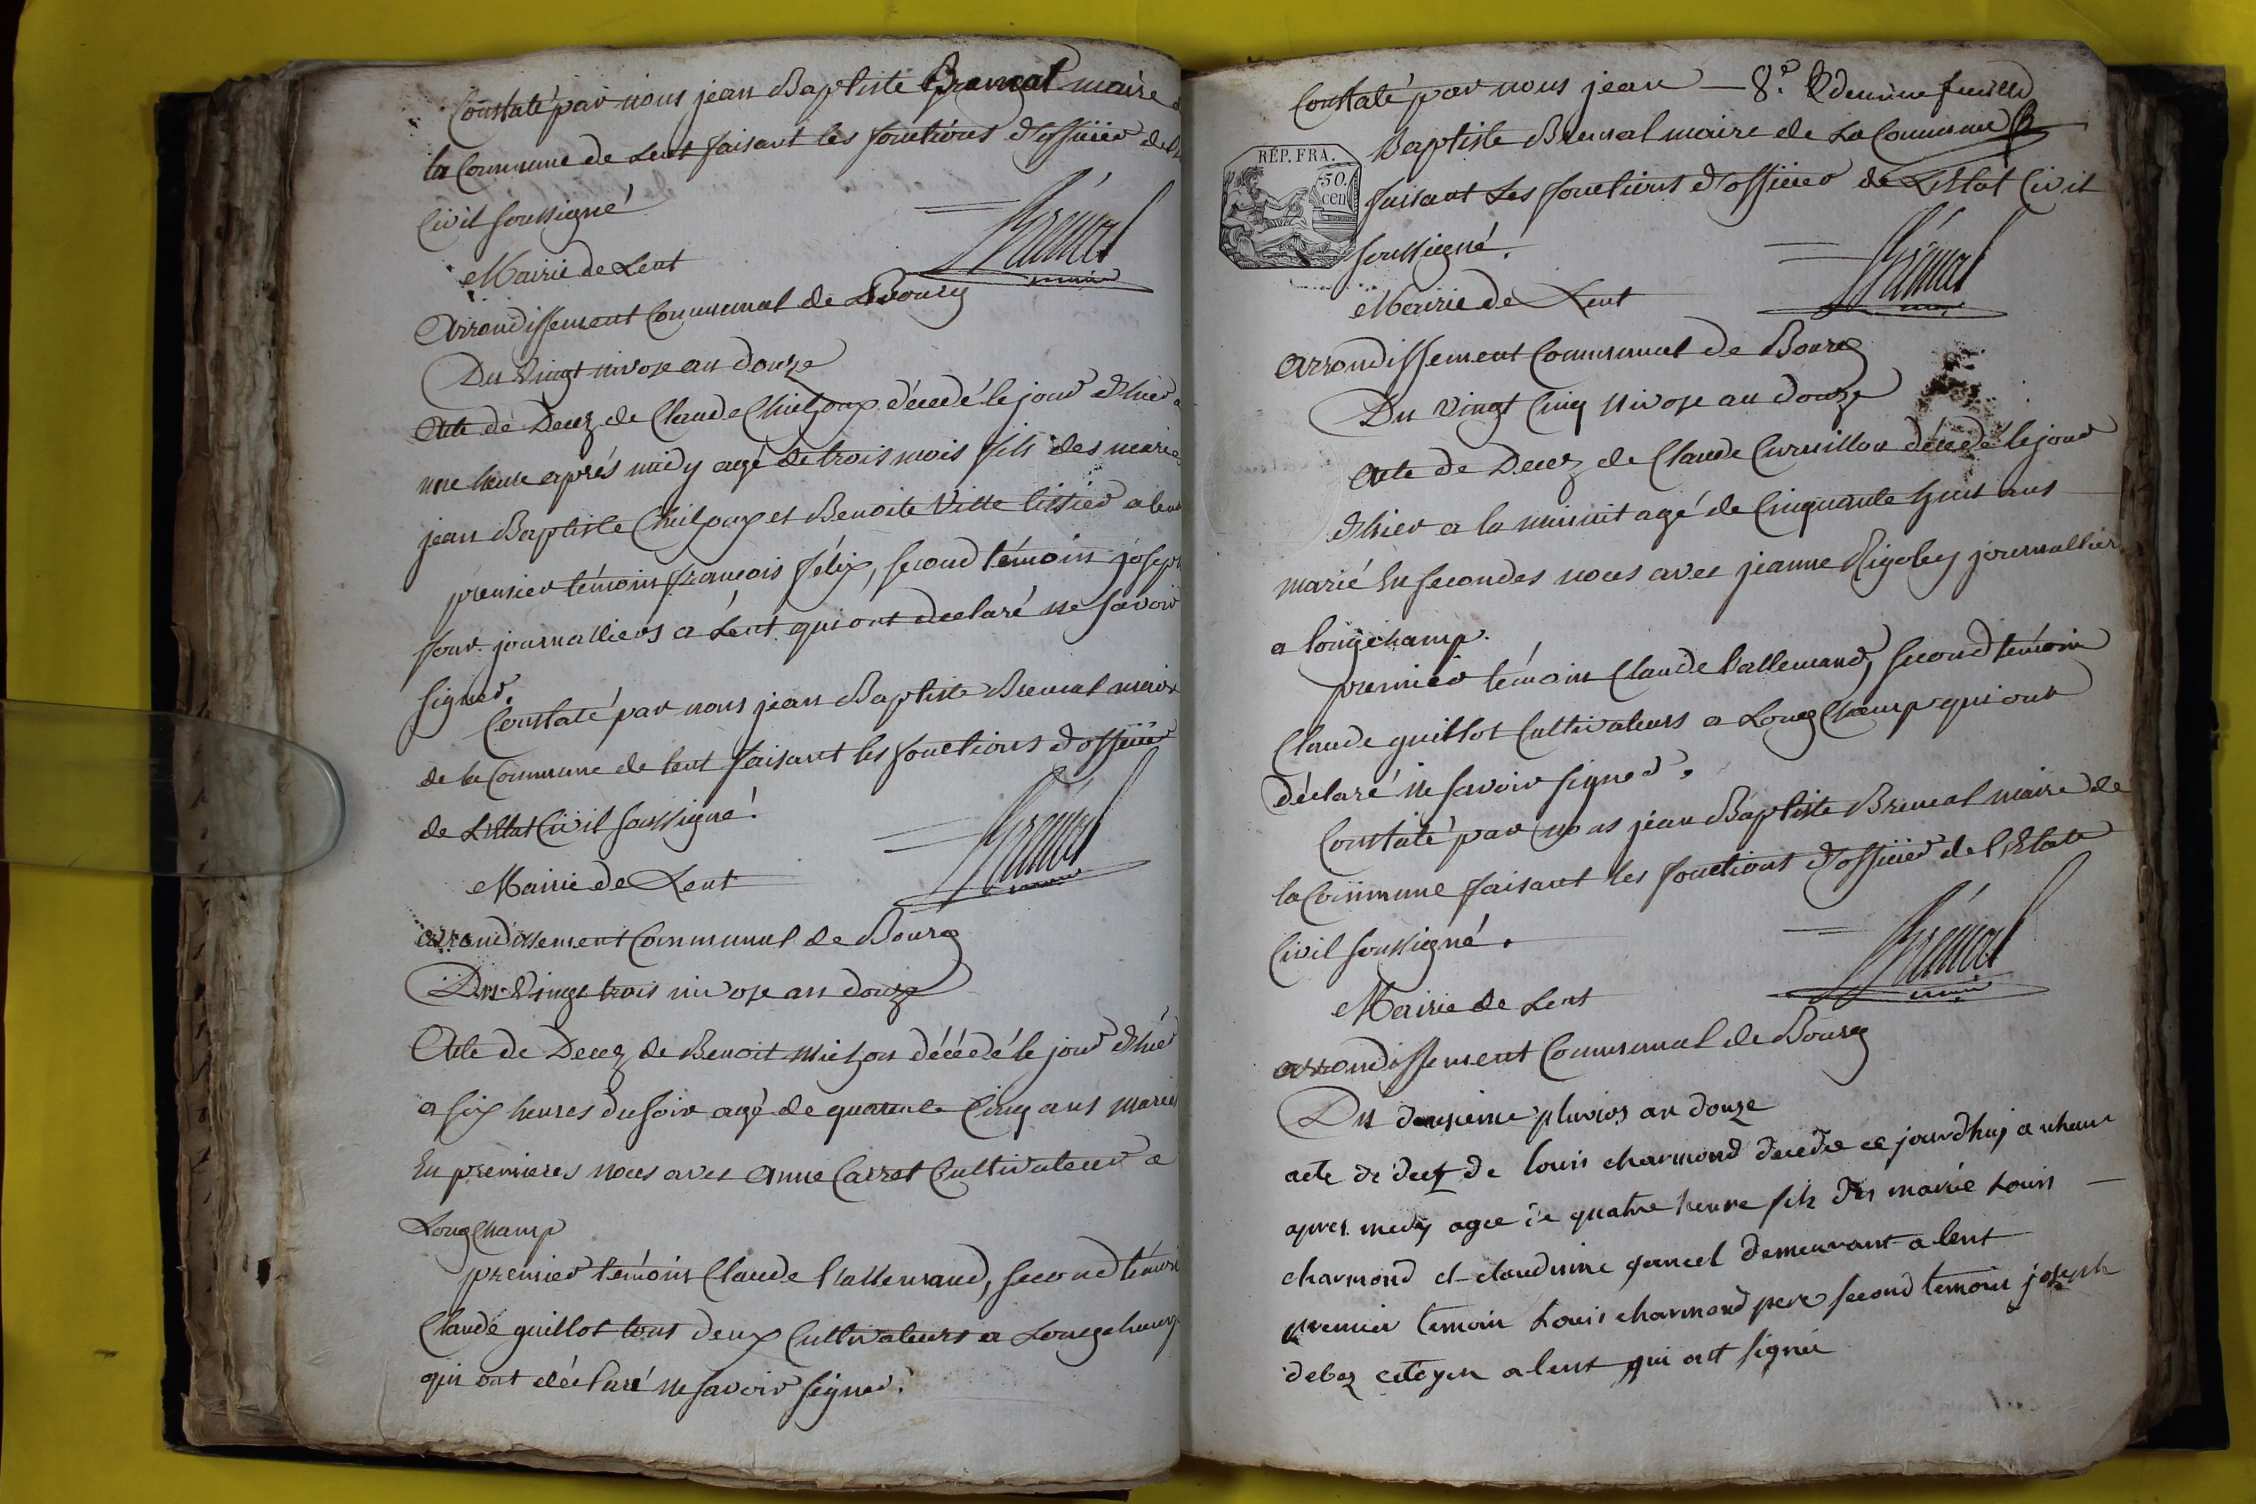 Constaté par nous jean Baptiste Brenal maire de
la Commune de Lent faisant les fonctions d'officier de
Civil soussigné
Brénal
maire
Mairie de Lent
Arrondissement Communal de Bourg
Du Vingt nivose an douze
Acte de Decez de Claude décedé le jour d'hier a
une heure aprés midy agé de trois mois fils des marié
jean Baptiste et Benoite Vitte tissier a lent
premier témoin françois félix, second témoin joseph
four journalliers a Lent qui ont declaré ne savoir
signer.
Constaté par nous jean Baptiste Brenal maire
de la Commune de lent faisant les fonctions d'officier
de L'Etat Civil soussigné.
Brénal
maire
Mairie de Lent
arrondissement Communal de Bourg
Du Vingt trois nivose an douze
Acte de Decez de Benoit décédé le jour d'hier
a six heures du soir agé de quarente Cinq ans marié
En premieres noces avec Anne Carret Cultivateur a
LongChamp
premier témoin Claude Lallemand, second témoin
Claude guillot tous deux Cultivateurs a Longchamp
qui ont déclaré ne savoir signer.
Constaté par nous jean — 8.e & feuille
Baptiste Brenal maire de La Commune
RÉP. FRA.
50.
cen
faisant Les fonctions d'officier de L'Etat Civil
soussigné.
Brénal
Mairie de Lent
arrondissement Communal de Bourg
Du vingt Cinq Nivose an douze
Acte de Decez de Claude Curnillon décédé le jour
d'hier a la minuit agé de Cinquante huit ans
marié En secondes noces avec jeanne Rigoley journallier
a longchamp.
premier témoin Claude Lallemand, second témoin
Claude guillot Cultivateurs a LongChamp qui ont
déclaré ne savoir signer.
Constaté par nous jean Baptiste Brenal maire de
la Commune faisant les fonctions d'officier de l'Etat
Civil soussigné.
Brénal
maire
Mairie de Lent
arrondissement Communal de Bourg
Du deuxieme pluvios an douze
acte de decz de louis charmond decedé ce jourdhuj a uheure
apres medy agee de quatre heure fils des marié Louis
charmond et claudinne demeurant a lent
premier temoin Louis charmond pere second temoin joseph
deboz citoyen a lent qui ont signée